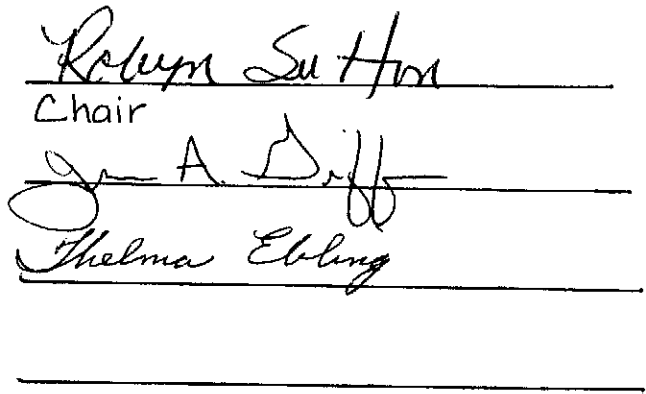 Robyn Sutton
Chair
A.
Thelma Ebling